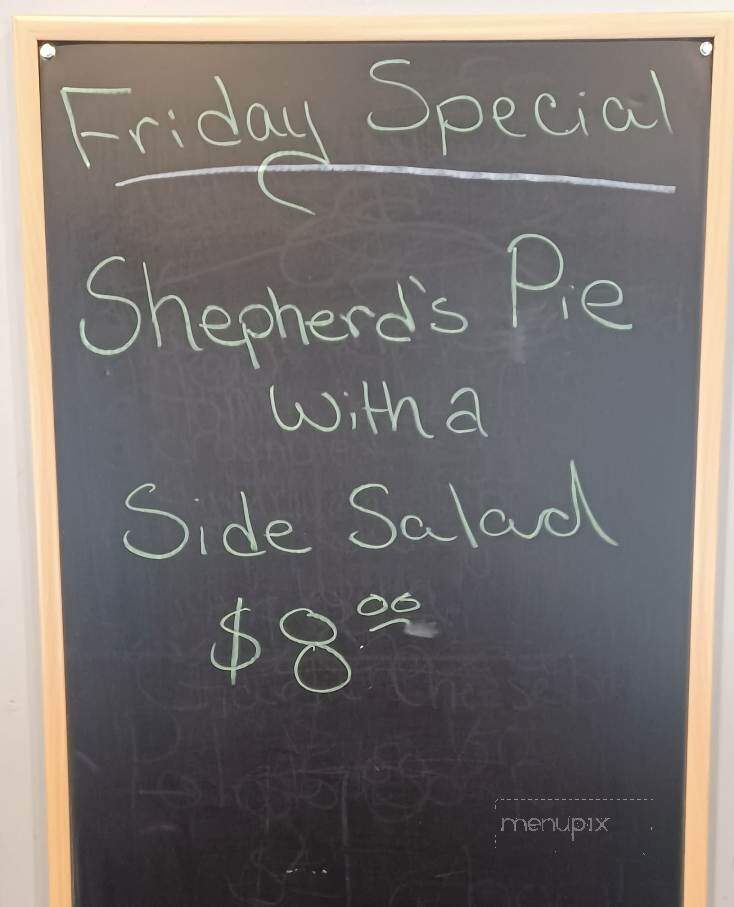 Friday Special
Shepherd's Pie
With a
Side Salad
$8.00
menupix